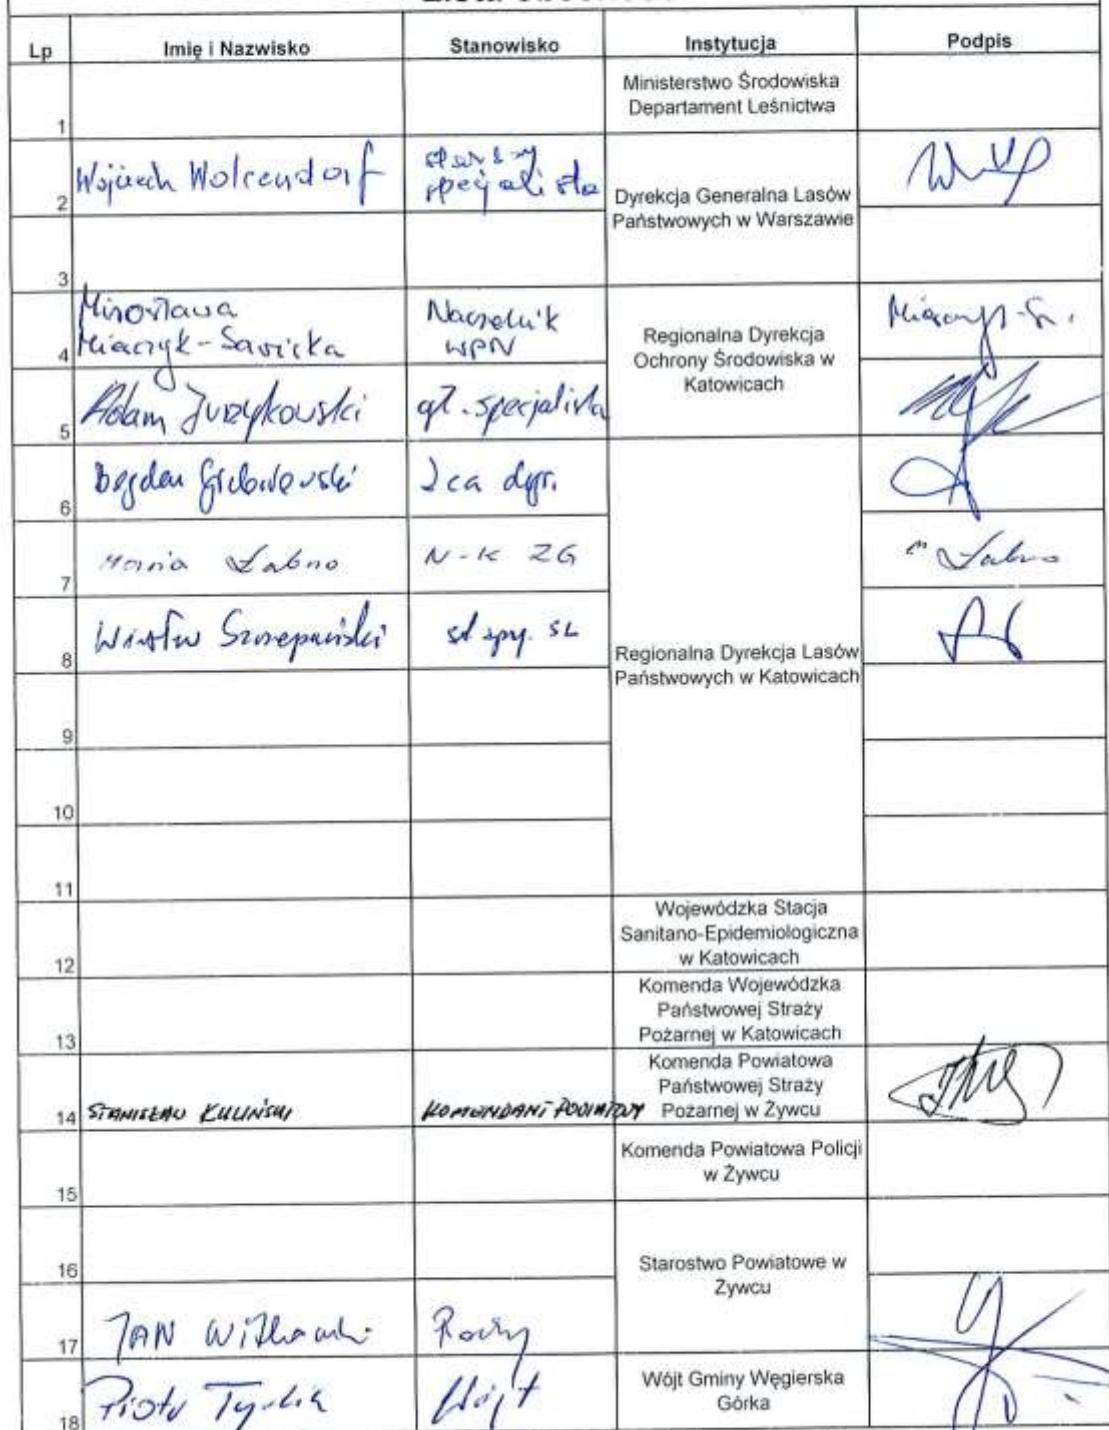 Lp Imię i Nazwisko Stanowisko Instytucja Podpis
1 Ministerstwo Środowiska
Departament Leśnictwa
2 Wojciech Wolcendorf starszy
specjalista
Dyrekcja Generalna Lasów
Państwowych w Warszawie
3
4 Mirosława
Miarczyk-Savicka
Naczelnik
WPN
Regionalna Dyrekcja
Ochrony Środowiska w
Katowicach
5 Adam Jurzykowski gł. specjalista
6 Bogdan Zca dyr.
7 Maria Łabno N-K ZG M Łabno
8 Wiesław Szczepański SL
Regionalna Dyrekcja Lasów
Państwowych w Katowicach
9
10
11
12 Wojewódzka Stacja
Sanitano-Epidemiologiczna
w Katowicach
13 Komenda Wojewódzka
Państwowej Straży
Pożarnej w Katowicach
14 STANISŁAW KULIŃSKI KOMENDANT POWIATOWY
Komenda Powiatowa
Państwowej Straży
Pożarnej w Żywcu
15 Komenda Powiatowa Policji
w Żywcu
16 Starostwo Powiatowe w
Żywcu
17 JAN
18 Piotr Wójt
Wójt Gminy Węgierska
Górka